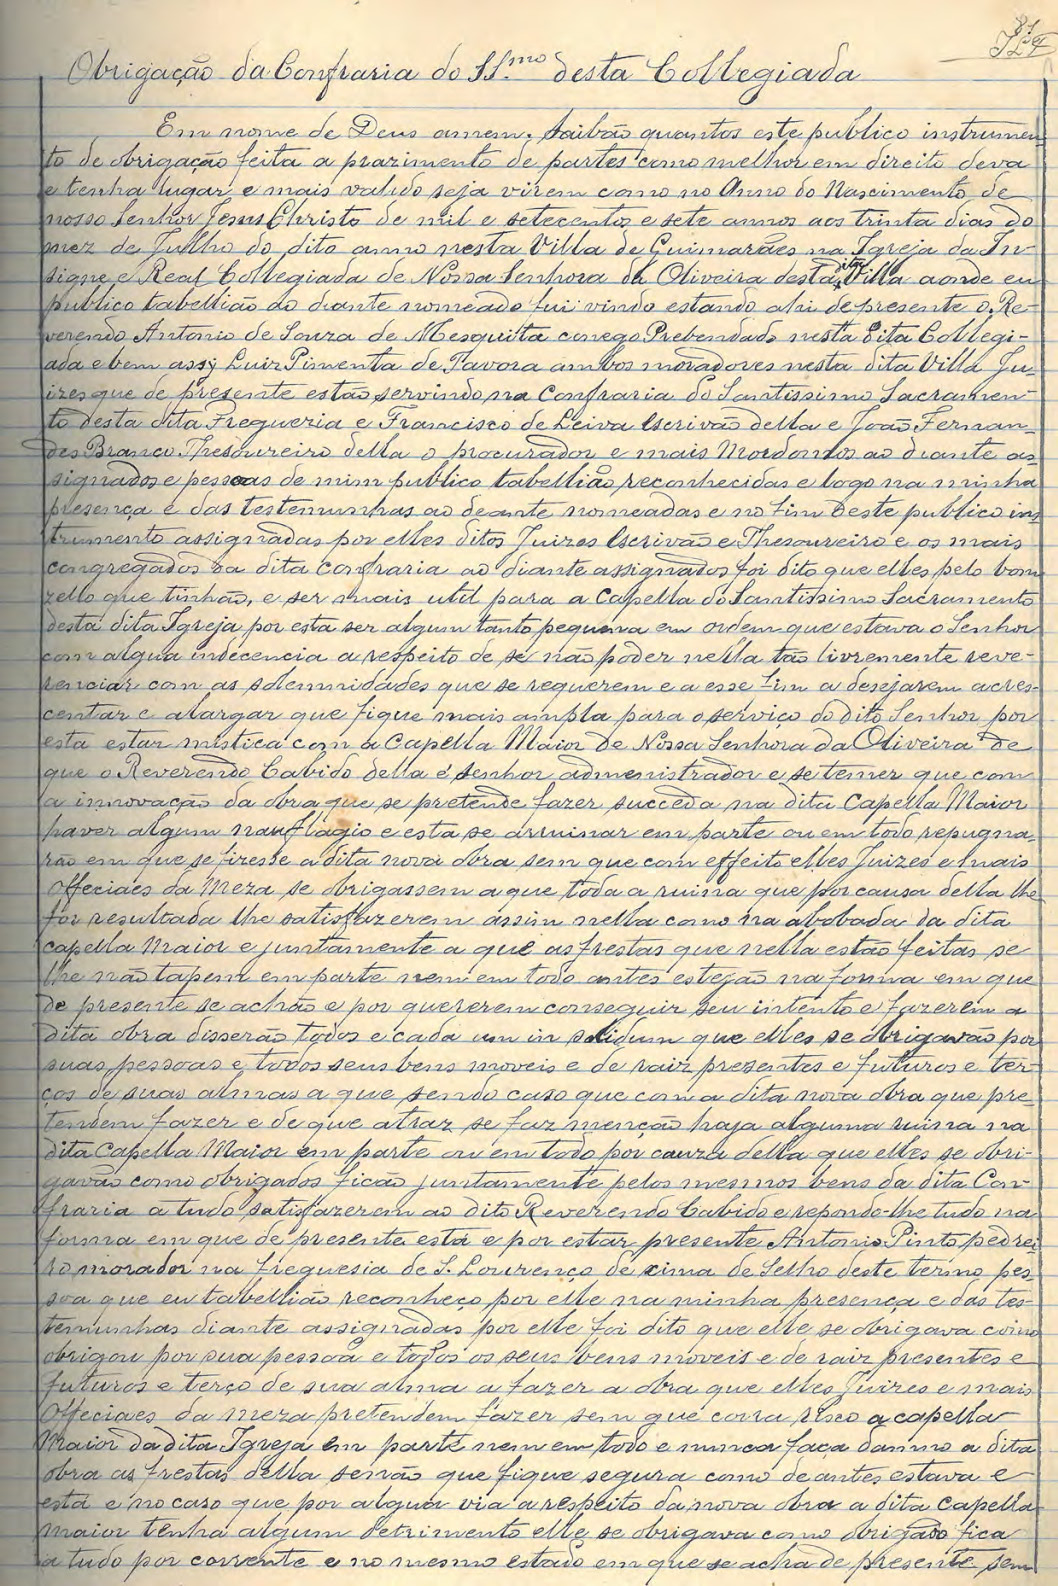 81
Obrigação da Confraria do SS.mo desta Collegiada
Em nome de Deus amem. Saibão quantos este publico instrumen-
to de obrigação feita a prazimento de partes como melhor em direito deva
e tenha lugar e mais valido seja virem como no Anno do Nascimento de
nosso Senhor Jesus Christo de mil e setecentos e sete annos aos trinta dias do
mez de Julho do dito anno nesta Villa de Guimarães na Igreja da In-
signe e Real Collegiada de Nossa Senhora da Oliveira desta dita Villa aonde eu
publico tabellião ao diante nomeado fui vindo estando ahi de presente o Re-
verendo Antonio de Souza de Mesquitta conego Prebendado nesta dita Collegi-
ada e bem assy Luiz Pimenta de Tavora ambos moradores nesta dita Villa Ju-
izes que de presente estão servindo na Confraria do Santissimo Sacramen-
to desta dita Fregueria e Francisco de Leiva Escrivão della e João Fernan-
des Branco Thesoureiro della o procurador e mais Mordomos ao diante as-
signados e pessoas de mim publico tabellião reconhecidas e logo na minha
presença e das testemunhas ao deante nomeadas e no fim deste publico ins
trumento assignadas por elles ditos Juizes Escrivão e Thesoureiro e os mais
congregados na dita confraria ao diante assignados foi dito que elles pelo bom
zello que tinhão, e ser mais util para a Capella do Santissimo Sacramento
desta dita Igreja por esta ser algum tanto pequena em ordem que estava o Senhor
com algua indecencia a respeito de se não poder nella tão livremente reve-
renciar com as solemnidades que se requerem e a esse fim a desejarem acres-
centar e alargar que fique mais ampla para o serviço do dito Senhor por
esta estar mistica com a Capella Maior de Nossa Senhora da Oliveira de
que o Reverendo Cabido della é senhor administrador e se temer que com
a innovação da obra que se pretende fazer succeda na dita Capella Maior
haver algum nauflagio e esta se arruinar em parte ou em todo repugna-
rão em que se fizesse a dita nova obra sem que com effeito elles Juizes e mais
offeciaes da Meza se obrigassem a que toda a ruina que por causa della lhe
for resultada lhe satisfazerem assim nella como na abobada da dita
capella Maior e juntamente a que as frestas que nella estão feitas se
lhe não tapem em parte nem em todo antes estejão na forma em que
de presente se achão e por quererem conseguir seu intento e fazerem a
dita obra disserão todos e cada um in solidum que elles se obrigavão por
suas pessoas e todos seus bens moveis e de raiz presentes e futuros e ter-
ços de suas almas a que sendo caso que com a dita nova obra que pre-
tendem fazer e de que atraz se faz menção haja alguma ruina na
dita Capella Maior em parte ou em todo por cauza della que elles se obri-
gavão como obrigados ficão juntamente pelos mesmos bens da dita Con-
fraria a tudo satisfazerem ao dito Reverendo Cabido e repondo-lhe tudo na
forma em que de presente está e por estar presente Antonio Pinto pedrei-
ro morador na freguesia de S. Lourenço de cima de Selho deste termo pes-
soa que eu tabellião reconheço por elle na minha presença e das tes-
temunhas diante assignadas por elle foi dito que elle se obrigava como
obrigou por sua pessoa e todos os seus bens moveis e de raiz presentes e
futuros e terço de sua alma a fazer a obra que elles Juizes e mais
Offeciaes da meza pretendem fazer sem que corra risco a capella
Maior da dita Igreja em parte nem em todo e nunca faça damno a dita
obra as frestas della senão que fique segura como de antes estava e
está e no caso que por algua via a respeito da nova obra a dita capella
maior tenha algum detrimento elle se obrigava como obrigado fica
a tudo por corrente e no mesmo estado em que se acha de presente sem